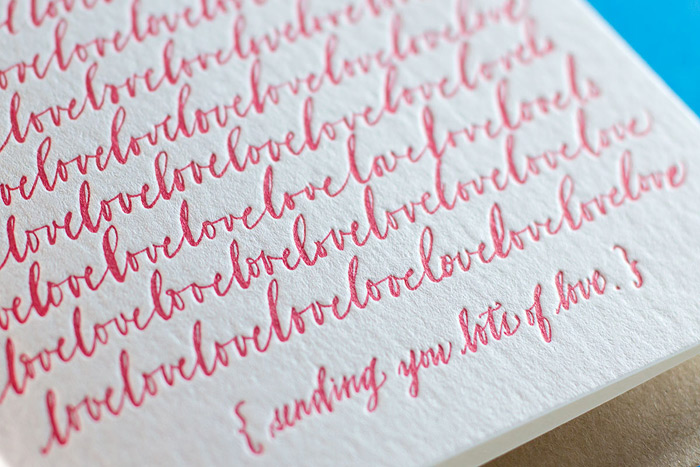 lovelovelove
ovelovelovelovelove
lovelovelovelovelovelove
ovelovelovelovelovelovelovels
lovelovelovelovelovelovelove
ovelovelovelovelovelovelovels
lovelovelovelovelovelovelovelovelove
lovelovelovelovelovelovelovelovelove
{ sending you lots of love. }